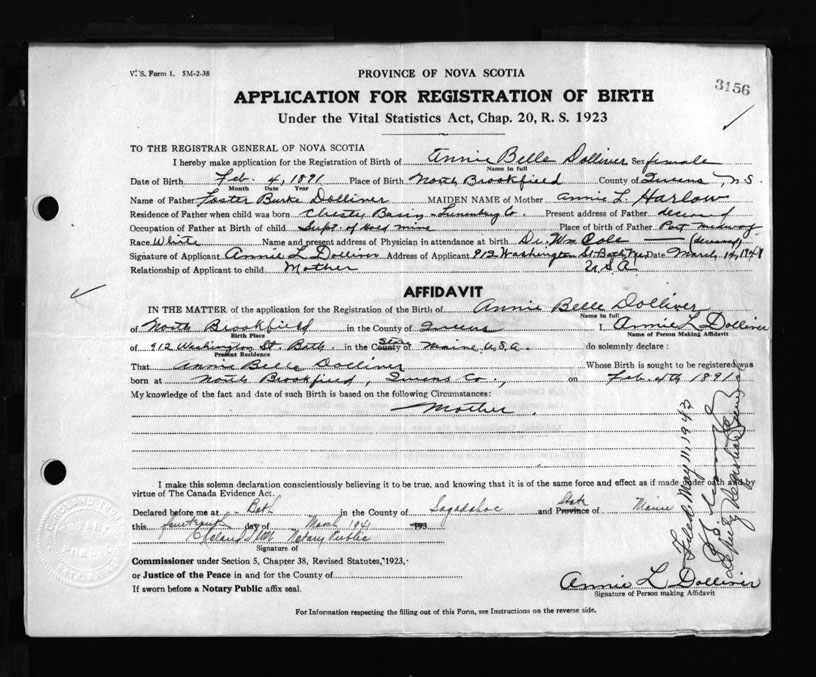 V. S. Form 1. 5M-2-38
PROVINCE OF NOVA SCOTIA
3156
APPLICATION FOR REGISTRATION OF BIRTH
Under the Vital Statistics Act, Chap. 20, R. S. 1923
TO THE REGISTRAR GENERAL OF NOVA SCOTIA
I hereby make application for the Registration of Birth of Annie Belle Dolliver Sex female
Name in full
Date of Birth Feb. 4, 1891 Place of Birth North Brookfield County of Queens, N.S.
Month Date Year
Name of Father Foster Burke Dolliver MAIDEN NAME of Mother Annie L. Harlow
Residence of Father when child was born Chester Basin - Lunenburg Co. Present address of Father deceased
Occupation of Father at Birth of child Supt. of Gold mine Place of birth of Father Port Medway
Race White Name and present address of Physician in attendance at birth Dr. Wm Cole (deceased)
Signature of Applicant Annie L Dolliver Address of Applicant 912 Washington St. Bath, Me. Date March 14, 1941
Relationship of Applicant to child Mother U.S.A
AFFIDAVIT
IN THE MATTER of the application for the Registration of the Birth of Annie Belle Dolliver
Name in full
of North Brookfield in the County of Queens I, Annie L Dolliver
Birth Place Name of Person Making Affidavit
of 912 Washington St. Bath in the County State of Maine, U.S.A. do solemnly declare :
Present Residence
That Annie Belle Dolliver Whose Birth is sought to be registered was
born at North Brookfield, Queens Co., on Feb. 4th 1891
My knowledge of the fact and date of such Birth is based on the following Circumstances:
Mother.
I make this solemn declaration conscientiously believing it to be true, and knowing that it is of the same force and effect as if made under oath and by
virtue of The Canada Evidence Act.
Declared before me at Bath in the County of Sagadahoc and Province State of Maine
this fourteenth day of March 1941 193
Notary Public
Signature of
Commissioner under Section 5, Chapter 38, Revised Statutes, 1923,
or Justice of the Peace in and for the County of
If sworn before a Notary Public affix seal.
Annie L Dolliver
Signature of Person making Affidavit
For Information respecting the filling out of this Form, see Instructions on the reverse side.
Filed May 11, 1943
Deputy Registrar General